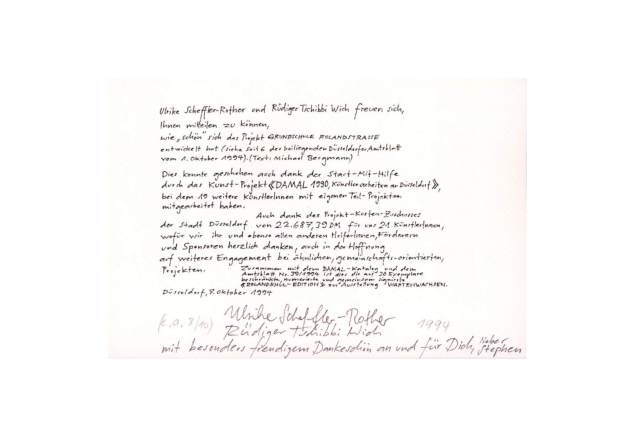 Ulrike Scheffler-Rother und Rüdiger Tschibbi Wich freuen sich,
Ihnen mitteilen zu können,
wie „schön" sich das Projekt GRUNDSCHULE ROLANDSTRASSE
entwickelt hat (siehe Seite 6 des beiliegenden Düsseldorfer Amtsblatt
vom 1. Oktober 1994). (Text: Michael Bergmann)
Dies konnte geschehen auch dank der Start-Mit-Hilfe
durch das Kunst-Projekt «DAMAL 1990, Künstlerarbeiten an Düsseldorf»,
bei dem 19 weitere KünstlerInnen mit eigenen Teil-Projekten
mitgearbeitet haben.
Auch dank des Projekt-Kosten-Zuschusses
der Stadt Düsseldorf von 22.687,39 DM für uns 21 KünstlerInnen,
wofür wir ihr und ebenso allen anderen HelferInnen, Förderern
und Sponsoren herzlich danken, auch in der Hoffnung
auf weiteres Engagement bei ähnlichen, gemeinschafts-orientierten,
Projekten.
Zusammen mit dem DAMAL-Katalog und dem
Amtsblatt No. 39/1994 ist das die auf 20 Exemplare
beschränkte, numerierte und gemeinsam signierte
-EDITION» zur Ausstellung WARTENWACHSEN.
Düsseldorf, 9. Oktober 1994
Ulrike Scheffler-Rother
(e.a. 8/10)
Rüdiger Tschibbi Wich
1994
mit besonders freudigem Dankeschön an und für Dich, lieber
Stephen